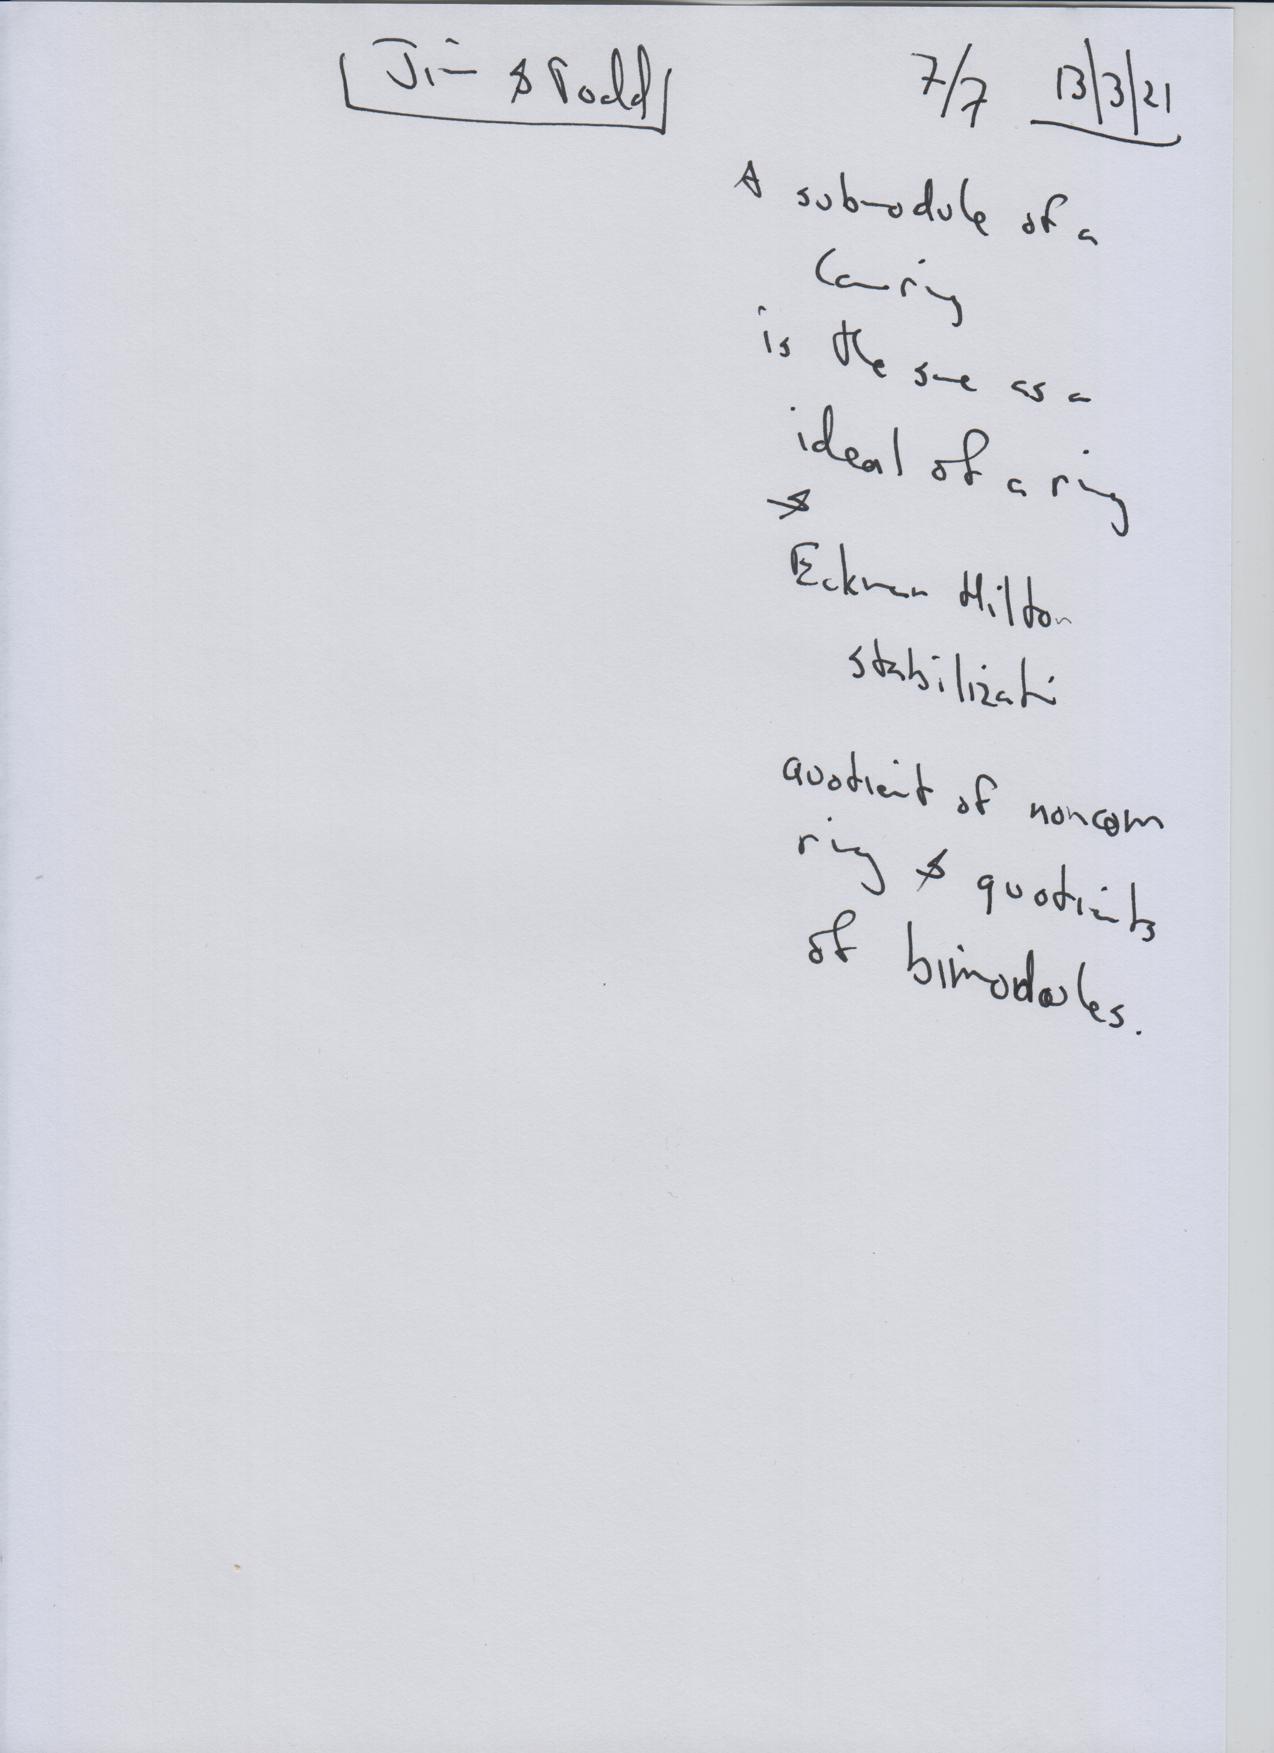 Jim & Todd 7/7 13/3/21
A submodule of a
Comring
is the same as a
ideal of a ring
&
Eckman Hilton
stabilizati
quotient of noncom
ring & quotients
of bimodules.